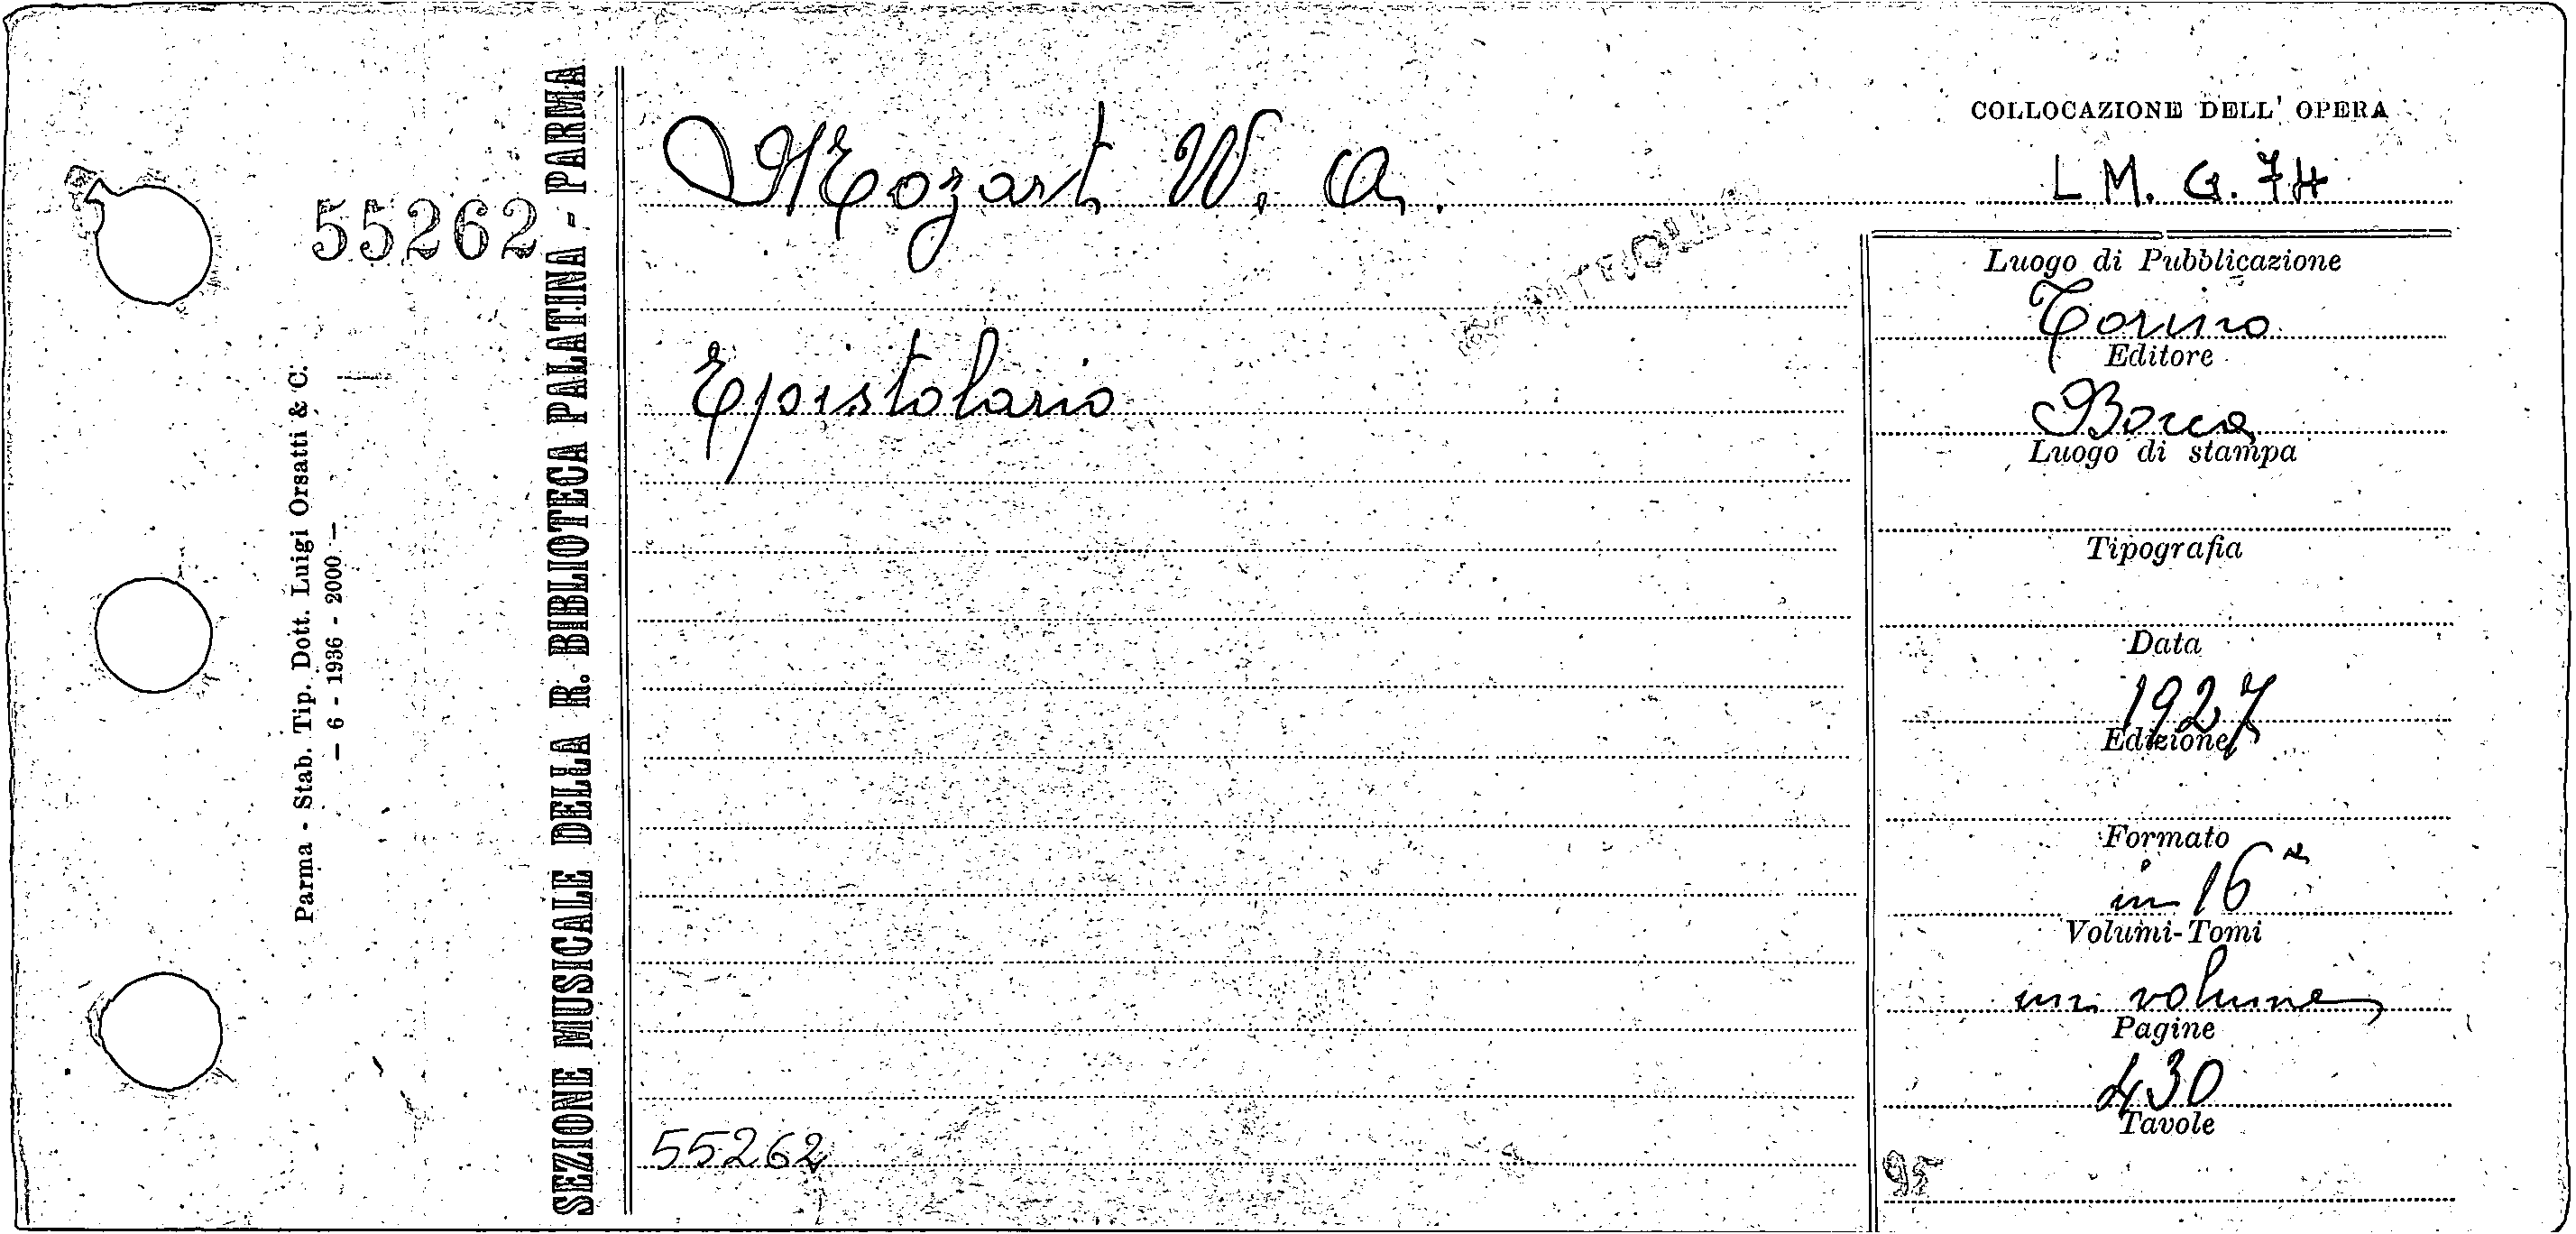 55262
Parma - Stab. Tip. Dott. Luigi Orsatti & C.
— 6 - 1936 - 2000 —
SEZIONE MUSICALE DELLA R. BIBLIOTECA PALATINA - PARMA
Mozart W. A.
Epistolario
55262
COLLOCAZIONE DELL' OPERA
L M. G. 74
Luogo di Pubblicazione
Torino
Editore
Bocca
Luogo di stampa
Tipografia
Data
1927
Edizione
Formato
in 16º
Volumi-Tomi
un volume
Pagine
430
Tavole
95